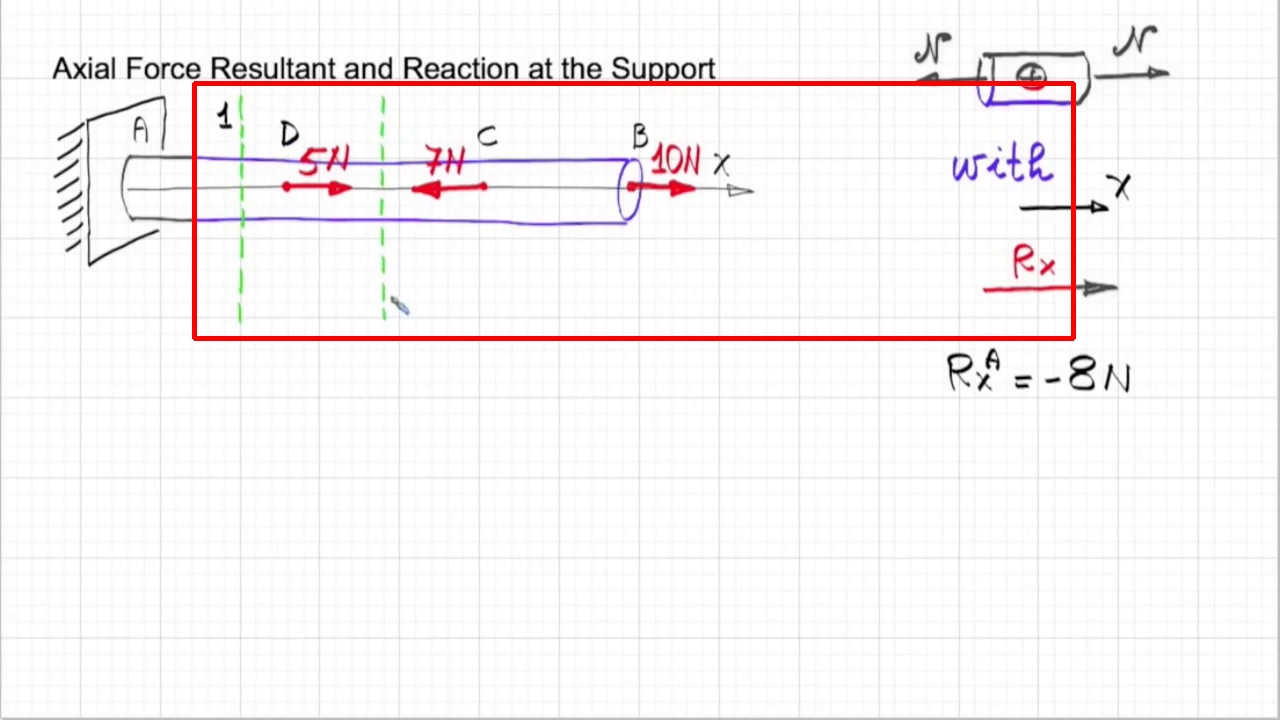 Axial Force Resultant and Reaction at the Support
N N
+
A 1 D 5N 7N C B 10N X
with
X
Rx
RxA = -8N